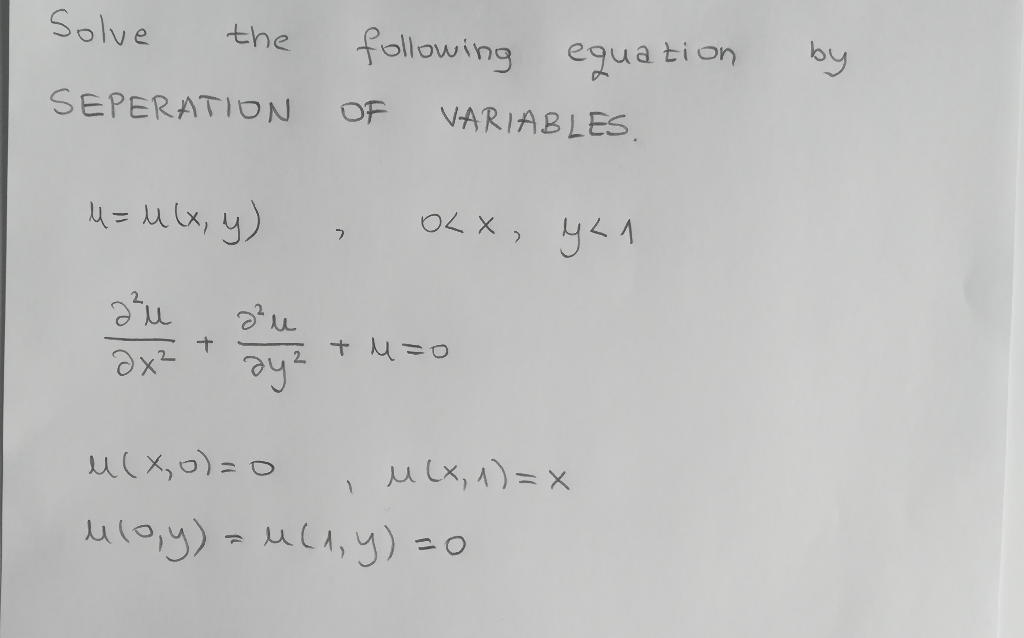 Solve the following equation by
SEPERATION OF VARIABLES.
u = u(x, y) , 0 < x, y < 1
∂²u/∂x² + ∂²u/∂y² + u = 0
u(x,0) = 0 , u(x,1) = x
u(0,y) = u(1,y) = 0